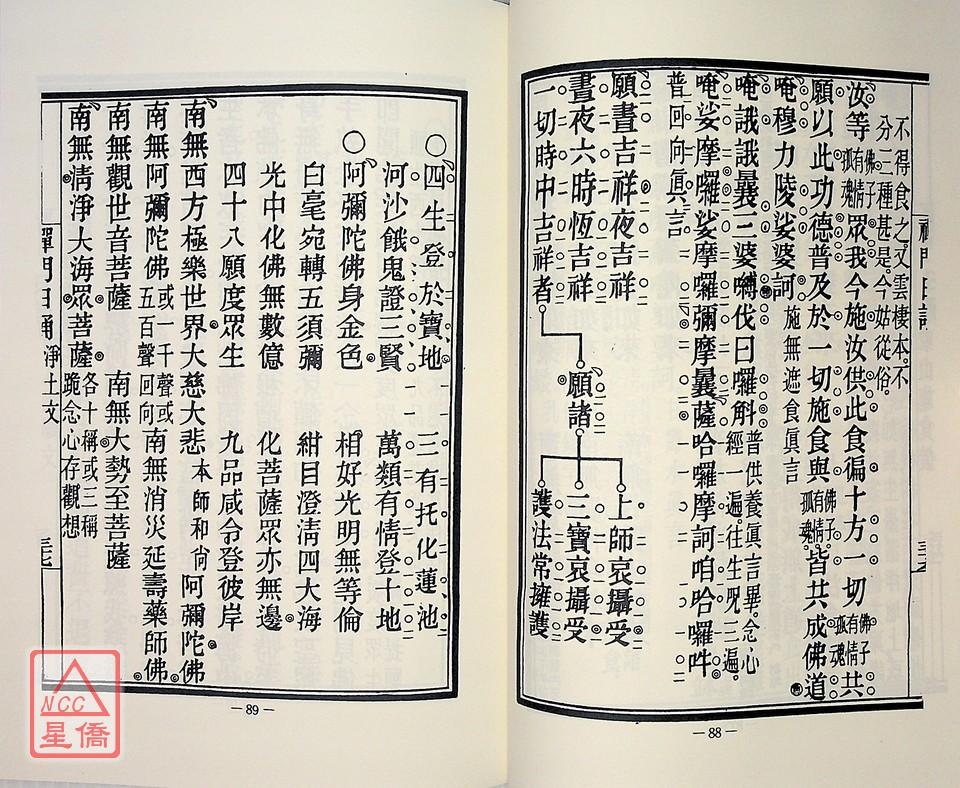 不得食之。又雲棲本。不
分三種甚是。今姑從俗。
汝等佛子有情孤魂眾我今施汝供此食徧十方一切佛子有情孤魂共
願以此功德普及於一切施食與佛子有情孤魂。皆共成佛道
唵穆力陵娑婆訶 施無遮食眞言
唵誐誐曩三婆嚩伐日囉斛 普供養眞言畢。念心經一遍。往生咒三遍。
唵娑摩囉娑摩囉彌摩曩薩哈囉摩訶咱哈囉吽
普回向眞言
願晝吉祥夜吉祥
晝夜六時恆吉祥
一切時中吉祥者
願諸
上師哀攝受
三寶哀攝受
護法常擁護
禪門日誦
—88—
○四生登於寶地 三有托化蓮池
河沙餓鬼證三賢 萬類有情登十地
○阿彌陀佛身金色 相好光明無等倫
白毫宛轉五須彌 紺目澄清四大海
光中化佛無數億 化菩薩眾亦無邊
四十八願度眾生 九品咸令登彼岸
南無西方極樂世界大慈大悲 本師和尙 阿彌陀佛
南無阿彌陀佛 或一千聲或五百聲回向 南無消災延壽藥師佛
南無觀世音菩薩 南無大勢至菩薩
南無清淨大海眾菩薩 各十稱或三稱跪念心存觀想
禪門日誦 淨土文 三七
—89—
NCC
星僑